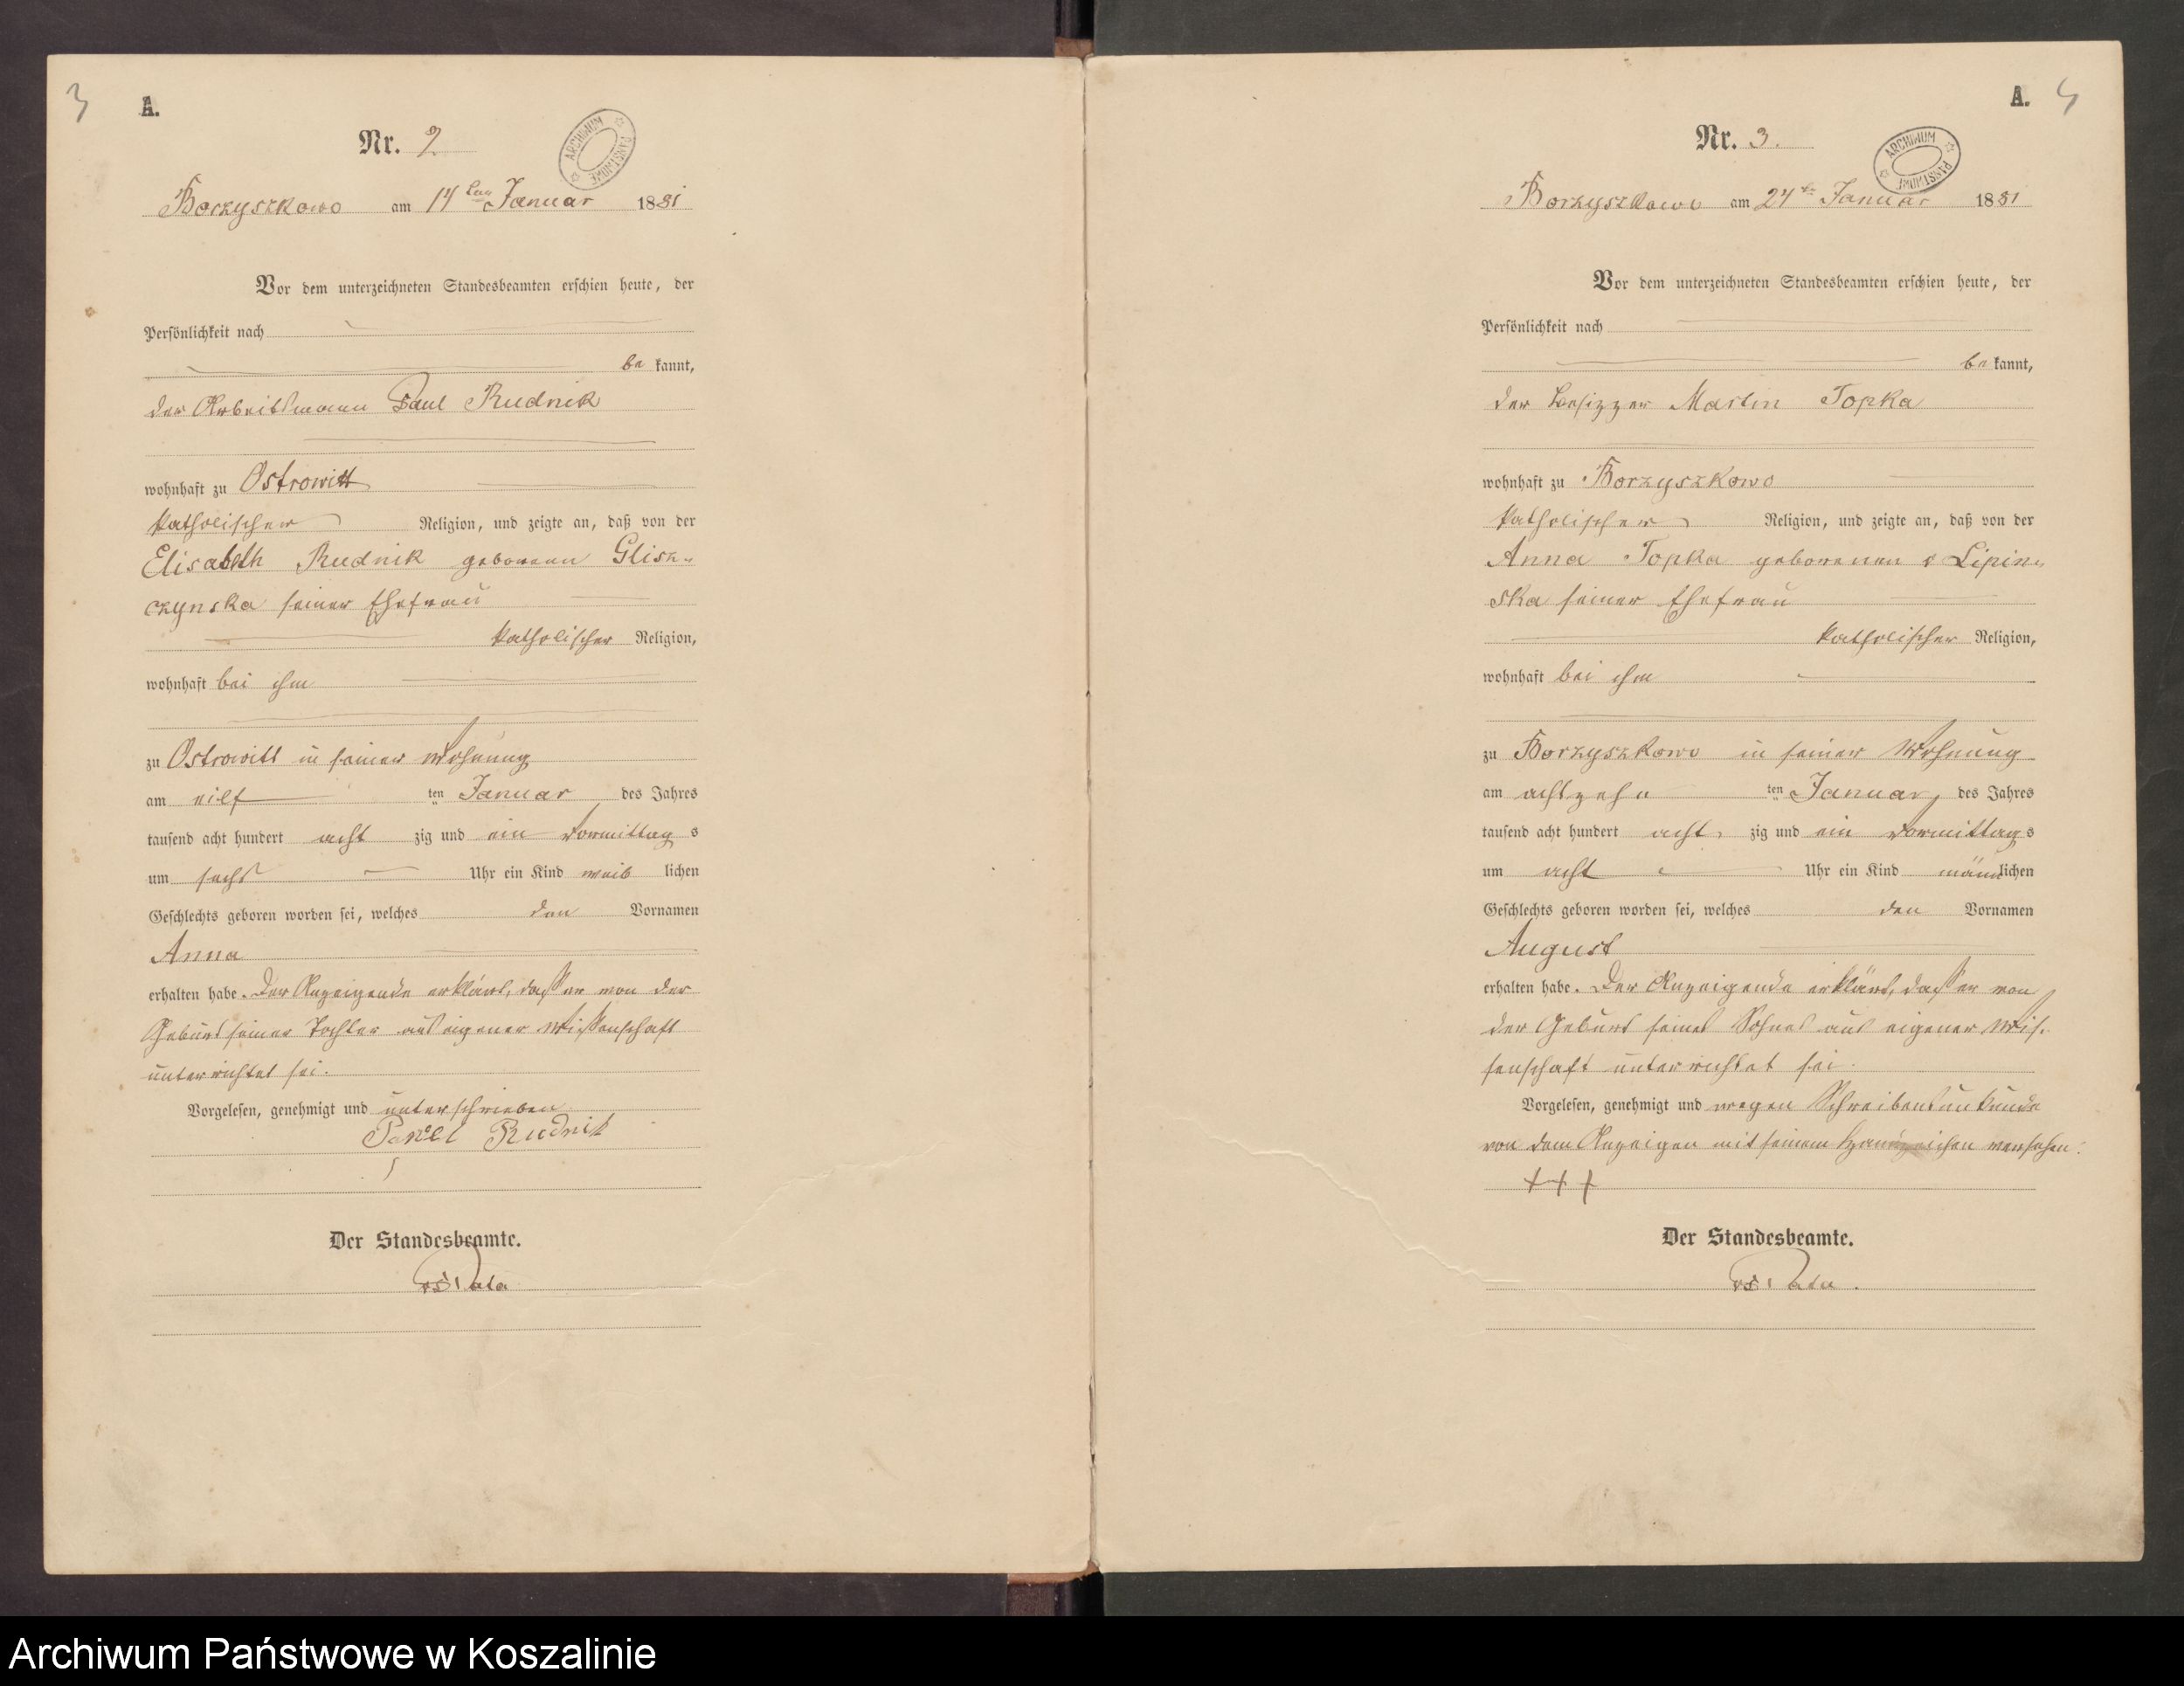 3
A.
Nr. 2
ARCHIWUM PAŃSTWOWE
Borzyszkowo am 14ten Januar 1881
Vor dem unterzeichneten Standesbeamten erschien heute, der
Persönlichkeit nach
be kannt,
der Arbeitsmann Paul Rudnik
wohnhaft zu Ostrowitt
katholischer Religion, und zeigte an, daß von der
Elisabeth Rudnik geborenen Glisz-
czynska seiner Ehefrau
katholischer Religion,
wohnhaft bei ihm
zu Ostrowitt in seiner Wohnung
am eilf ten Januar des Jahres
tausend acht hundert acht zig und ein Vormittag s
um sechs Uhr ein Kind weib lichen
Geschlechts geboren worden sei, welches den Vornamen
Anna
erhalten habe. Der Anzeigende erklärt, daß er von der
Geburt seiner Tochter aus eigener Wissenschaft
unterrichtet sei.
Vorgelesen, genehmigt und unterschrieben
Rudnik
Der Standesbeamte.
A. 4
Nr. 3.
ARCHIWUM PAŃSTWOWE
Borzyszkowo am 24ten Januar 1881
Vor dem unterzeichneten Standesbeamten erschien heute, der
Persönlichkeit nach
be kannt,
der Besitzer Martin Topka
wohnhaft zu Borzyszkowo
katholischer Religion, und zeigte an, daß von der
Anna Topka geborenen v Lipin-
ska seiner Ehefrau
katholischer Religion,
wohnhaft bei ihm
zu Borzyszkowo in seiner Wohnung
am achtzehn ten Januar des Jahres
tausend acht hundert acht zig und ein Vormittag s
um acht Uhr ein Kind männlichen
Geschlechts geboren worden sei, welches den Vornamen
August
erhalten habe. Der Anzeigende erklärt, daß er von
der Geburt seines Sohnes aus eigener Wis-
senschaft unterrichtet sei.
Vorgelesen, genehmigt und wegen Schreibensunkunde
von dem Anzeigen mit seinem Handzeichen versehen.
+++
Der Standesbeamte.
Archiwum Państwowe w Koszalinie